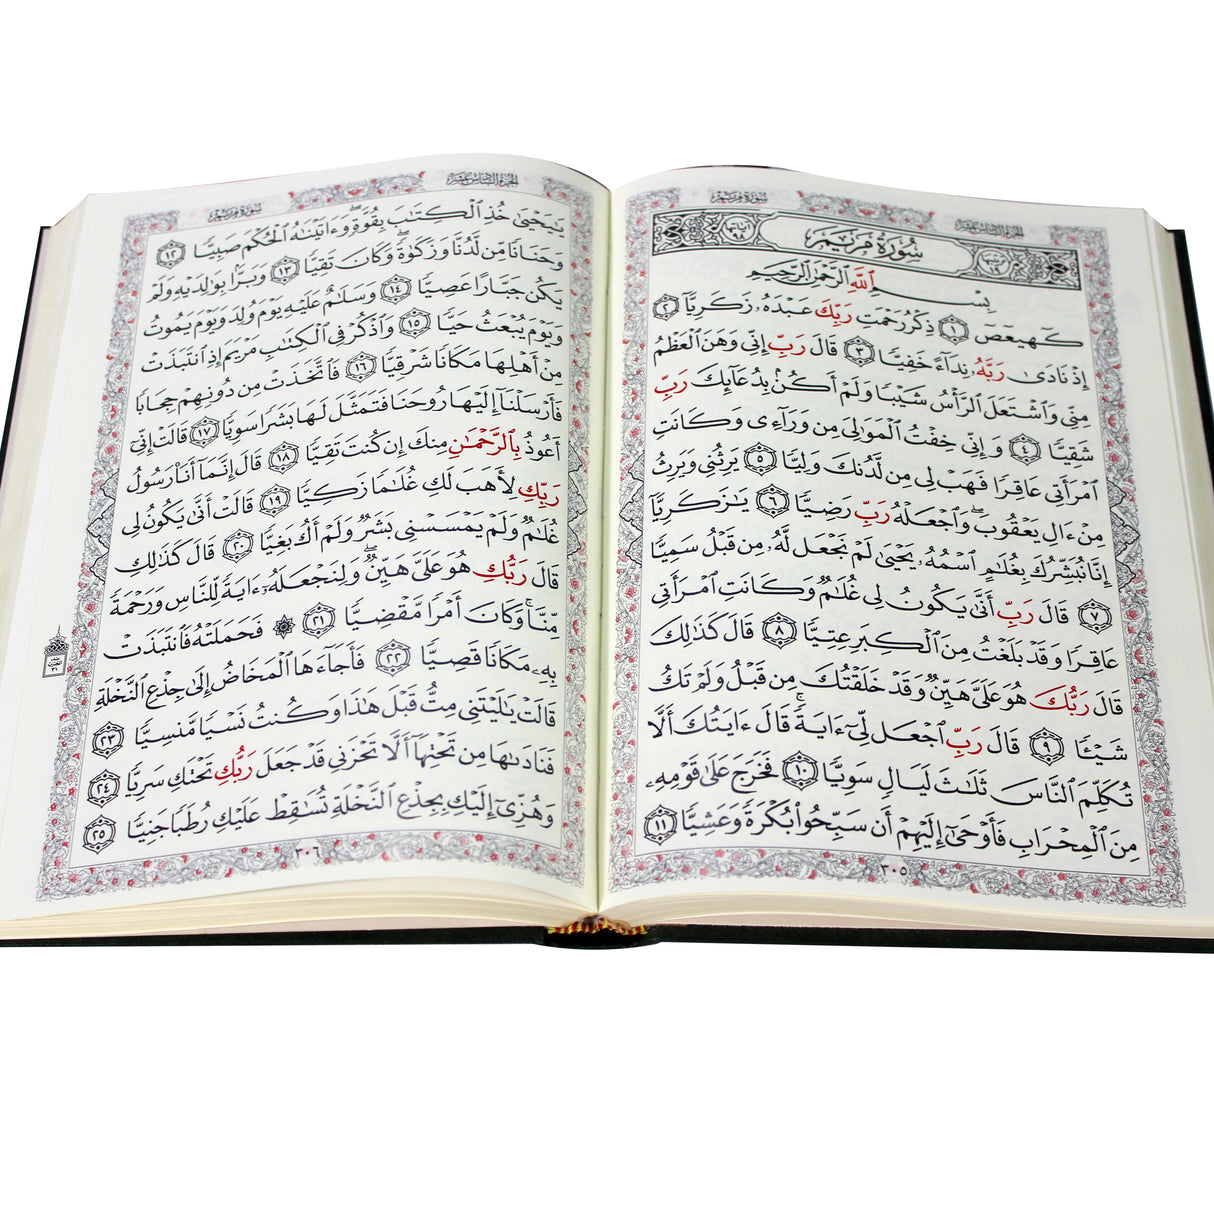 سُورَةُ مَرْيَم
الجُزءُ السَّادِسَ عَشَرَ
سُورَةُ مَرْيَمَ
آيَاتُهَا ٩٨
بِسْمِ ٱللَّهِ ٱلرَّحْمَٰنِ ٱلرَّحِيمِ
كٓهيعٓصٓ ١ ذِكْرُ رَحْمَتِ رَبِّكَ عَبْدَهُۥ زَكَرِيَّآ ٢
إِذْ نَادَىٰ رَبَّهُۥ نِدَآءً خَفِيًّا ٣ قَالَ رَبِّ إِنِّي وَهَنَ ٱلْعَظْمُ
مِنِّي وَٱشْتَعَلَ ٱلرَّأْسُ شَيْبًا وَلَمْ أَكُنۢ بِدُعَآئِكَ رَبِّ
شَقِيًّا ٤ وَإِنِّي خِفْتُ ٱلْمَوَٰلِيَ مِن وَرَآءِي وَكَانَتِ
ٱمْرَأَتِي عَاقِرًا فَهَبْ لِي مِن لَّدُنكَ وَلِيًّا ٥ يَرِثُنِي وَيَرِثُ
مِنْ ءَالِ يَعْقُوبَ ۖ وَٱجْعَلْهُ رَبِّ رَضِيًّا ٦ يَٰزَكَرِيَّآ
إِنَّا نُبَشِّرُكَ بِغُلَٰمٍ ٱسْمُهُۥ يَحْيَىٰ لَمْ نَجْعَل لَّهُۥ مِن قَبْلُ سَمِيًّا
٧ قَالَ رَبِّ أَنَّىٰ يَكُونُ لِي غُلَٰمٌ وَكَانَتِ ٱمْرَأَتِي
عَاقِرًا وَقَدْ بَلَغْتُ مِنَ ٱلْكِبَرِ عِتِيًّا ٨ قَالَ كَذَٰلِكَ
قَالَ رَبُّكَ هُوَ عَلَيَّ هَيِّنٌ وَقَدْ خَلَقْتُكَ مِن قَبْلُ وَلَمْ تَكُ
شَيْـًٔا ٩ قَالَ رَبِّ ٱجْعَل لِّيٓ ءَايَةً ۚ قَالَ ءَايَتُكَ أَلَّا
تُكَلِّمَ ٱلنَّاسَ ثَلَٰثَ لَيَالٍ سَوِيًّا ١٠ فَخَرَجَ عَلَىٰ قَوْمِهِۦ
مِنَ ٱلْمِحْرَابِ فَأَوْحَىٰٓ إِلَيْهِمْ أَن سَبِّحُوا۟ بُكْرَةً وَعَشِيًّا ١١
٣٠٥
الجُزءُ السَّادِسَ عَشَرَ
سُورَةُ مَرْيَم
يَٰيَحْيَىٰ خُذِ ٱلْكِتَٰبَ بِقُوَّةٍ ۖ وَءَاتَيْنَٰهُ ٱلْحُكْمَ صَبِيًّا ١٢
وَحَنَانًا مِّن لَّدُنَّا وَزَكَوٰةً ۖ وَكَانَ تَقِيًّا ١٣ وَبَرًّۢا بِوَٰلِدَيْهِ وَلَمْ
يَكُن جَبَّارًا عَصِيًّا ١٤ وَسَلَٰمٌ عَلَيْهِ يَوْمَ وُلِدَ وَيَوْمَ يَمُوتُ
وَيَوْمَ يُبْعَثُ حَيًّا ١٥ وَٱذْكُرْ فِي ٱلْكِتَٰبِ مَرْيَمَ إِذِ ٱنتَبَذَتْ
مِنْ أَهْلِهَا مَكَانًا شَرْقِيًّا ١٦ فَٱتَّخَذَتْ مِن دُونِهِمْ حِجَابًا
فَأَرْسَلْنَآ إِلَيْهَا رُوحَنَا فَتَمَثَّلَ لَهَا بَشَرًا سَوِيًّا ١٧ قَالَتْ إِنِّيٓ
أَعُوذُ بِٱلرَّحْمَٰنِ مِنكَ إِن كُنتَ تَقِيًّا ١٨ قَالَ إِنَّمَآ أَنَا۠ رَسُولُ
رَبِّكِ لِأَهَبَ لَكِ غُلَٰمًا زَكِيًّا ١٩ قَالَتْ أَنَّىٰ يَكُونُ لِي
غُلَٰمٌ وَلَمْ يَمْسَسْنِي بَشَرٌ وَلَمْ أَكُ بَغِيًّا ٢٠ قَالَ كَذَٰلِكِ
قَالَ رَبُّكِ هُوَ عَلَيَّ هَيِّنٌ ۖ وَلِنَجْعَلَهُۥٓ ءَايَةً لِّلنَّاسِ وَرَحْمَةً
مِّنَّا ۚ وَكَانَ أَمْرًا مَّقْضِيًّا ٢١ ۞ فَحَمَلَتْهُ فَٱنتَبَذَتْ
بِهِۦ مَكَانًا قَصِيًّا ٢٢ فَأَجَآءَهَا ٱلْمَخَاضُ إِلَىٰ جِذْعِ ٱلنَّخْلَةِ
قَالَتْ يَٰلَيْتَنِي مِتُّ قَبْلَ هَٰذَا وَكُنتُ نَسْيًا مَّنسِيًّا ٢٣
فَنَادَىٰهَا مِن تَحْتِهَآ أَلَّا تَحْزَنِي قَدْ جَعَلَ رَبُّكِ تَحْتَكِ سَرِيًّا ٢٤
وَهُزِّيٓ إِلَيْكِ بِجِذْعِ ٱلنَّخْلَةِ تُسَٰقِطْ عَلَيْكِ رُطَبًا جَنِيًّا ٢٥
٣٠٦